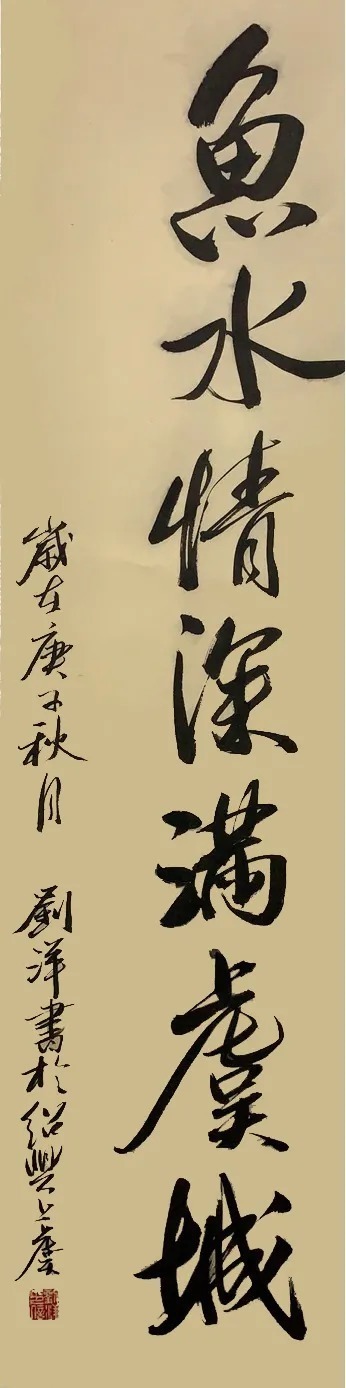 魚水情深满虞城
歲在庚子秋月 劉洋書於紹興上虞